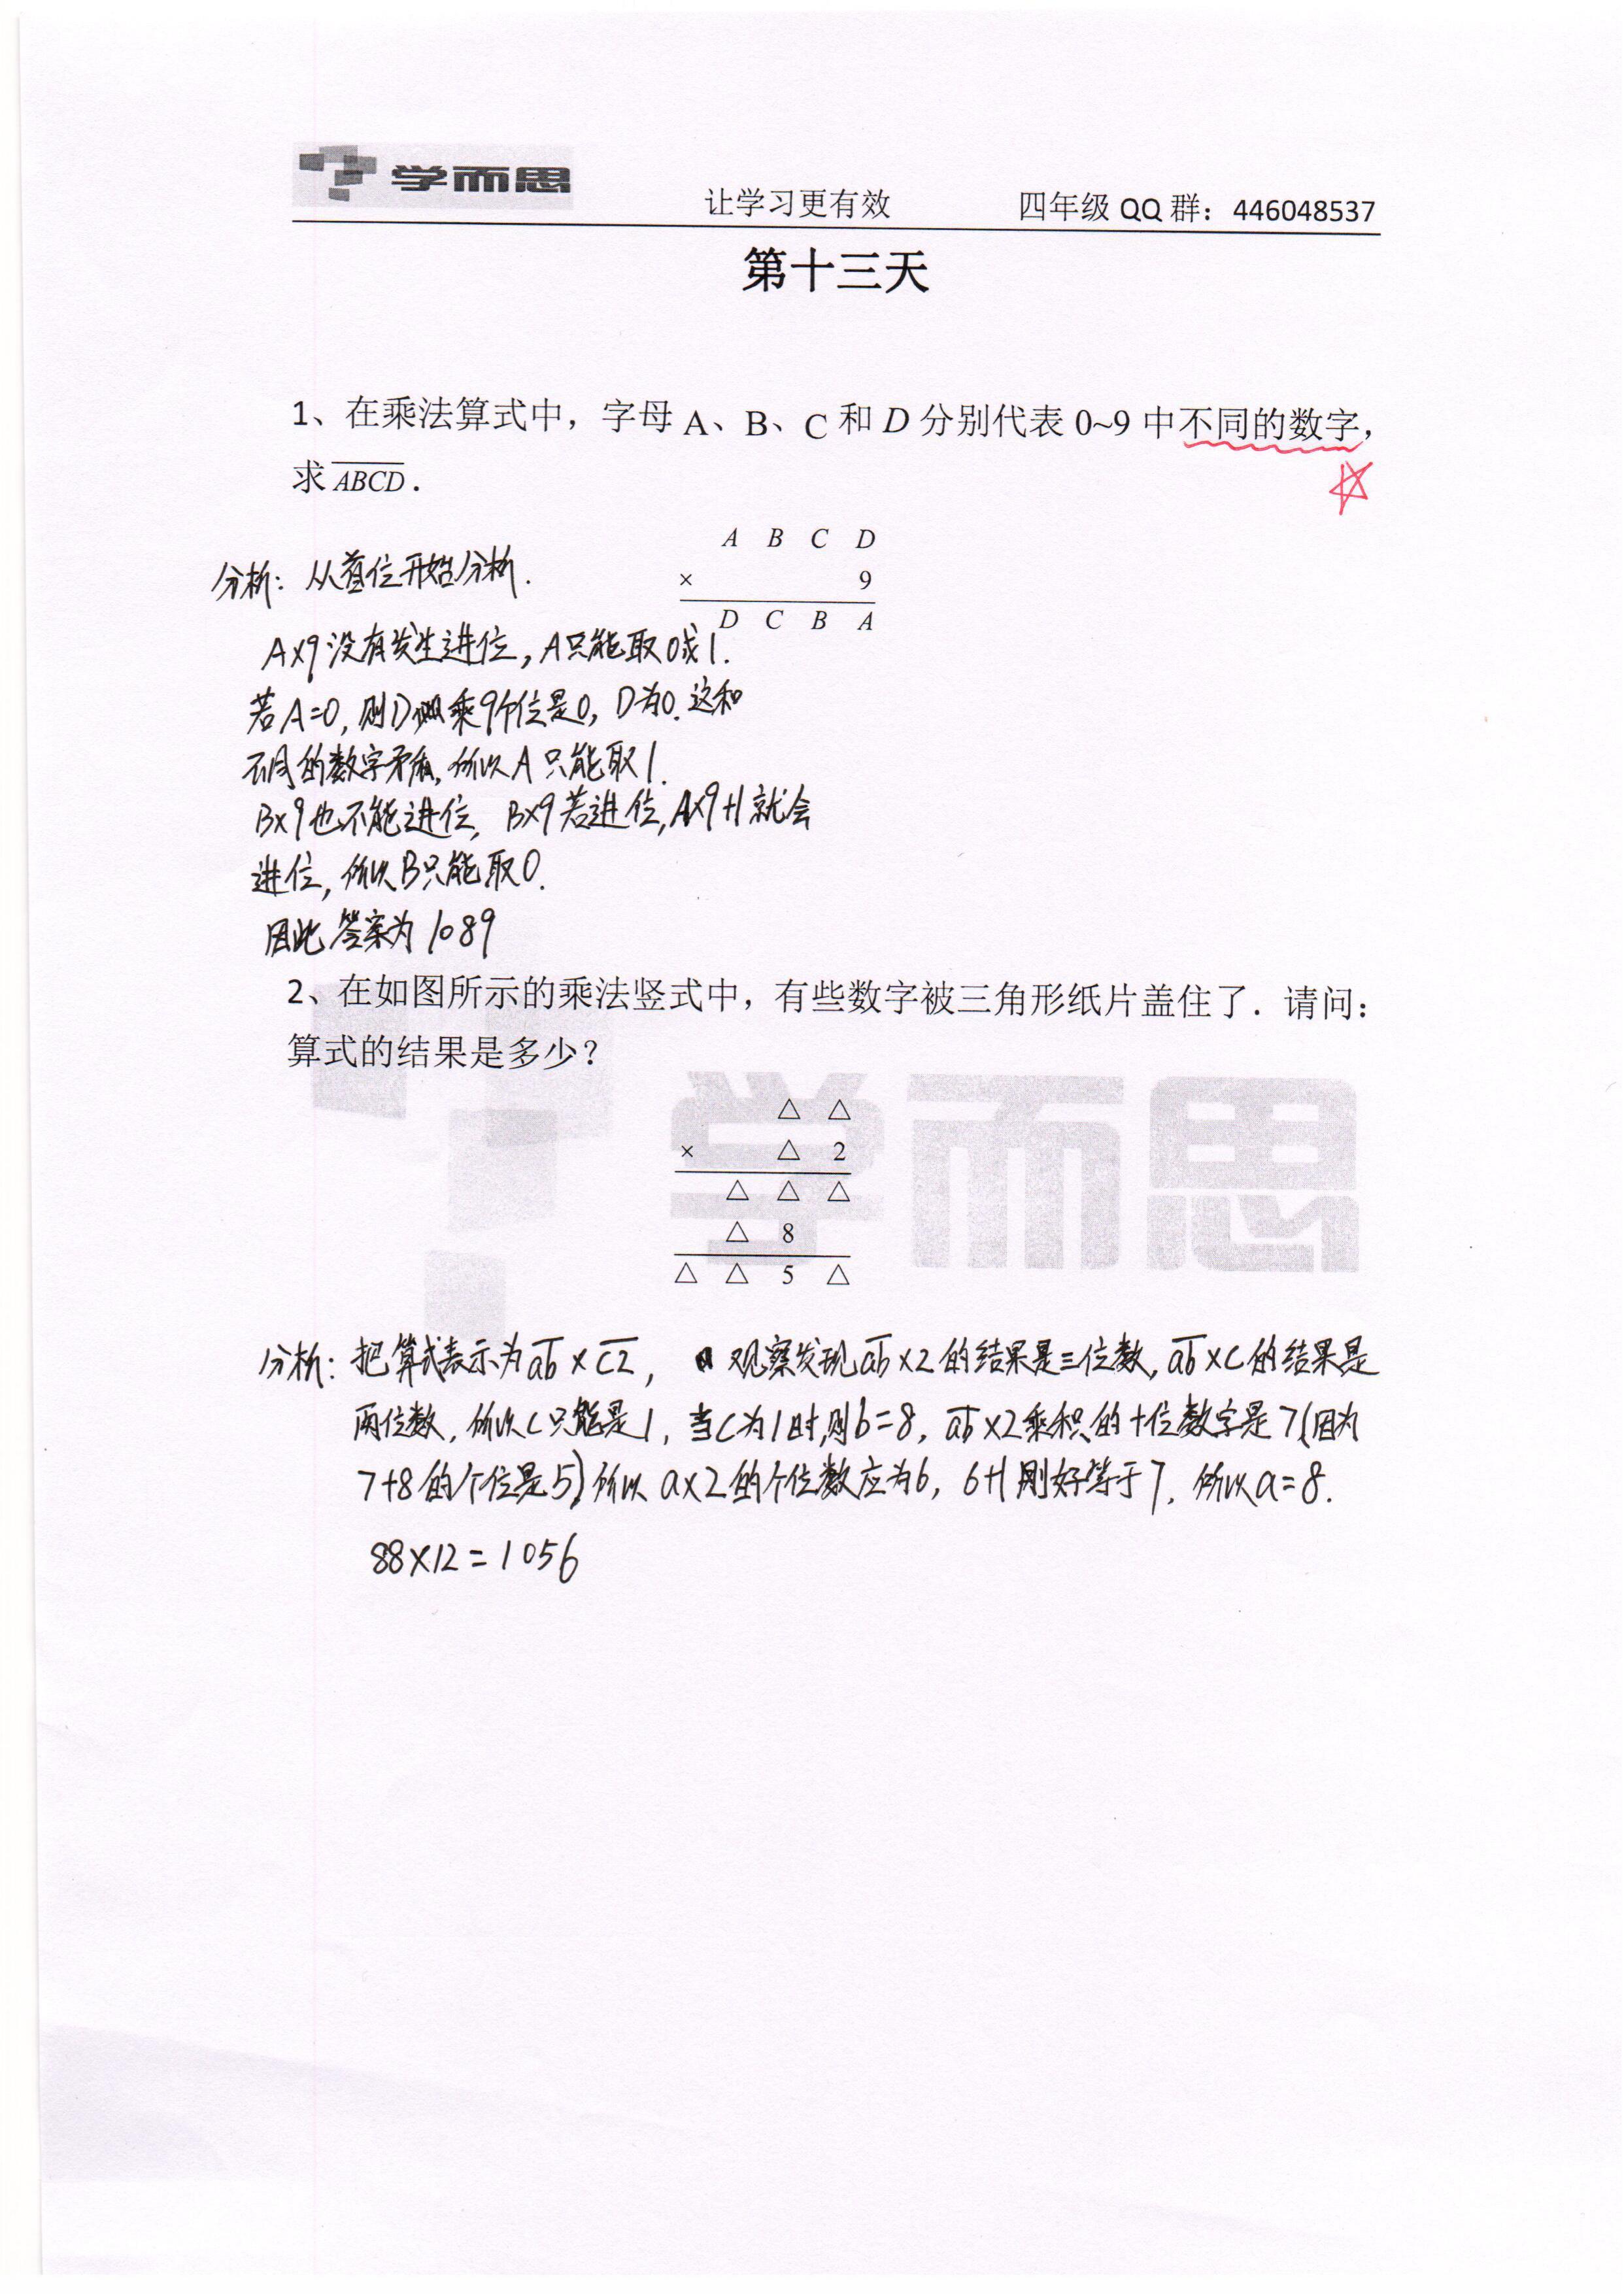 学而思
让学习更有效 四年级 QQ 群：446048537
第十三天
1、在乘法算式中，字母 A、B、C 和 D 分别代表 0~9 中不同的数字，
求 ABCD．
A B C D
× 9
D C B A
分析：从首位开始分析．
A×9没有发生进位，A只能取0或1．
若A=0，则D 乘9个位是0，D为0．这和
不同的数字矛盾，所以A只能取1．
B×9也不能进位，B×9若进位，A×9+1就会
进位，所以B只能取0．
因此答案为1089
2、在如图所示的乘法竖式中，有些数字被三角形纸片盖住了．请问：
算式的结果是多少？
学而思
△ △
× △ 2
△ △ △
△ 8
△ △ 5 △
分析：把算式表示为ab×c2，观察发现ab×2的结果是三位数，ab×c的结果是
两位数，所以c只能是1，当c为1时，则b=8，ab×2乘积的十位数字是7（因为
7+8的个位是5）所以a×2的个位数应为6，6+1刚好等于7，所以a=8．
88×12=1056